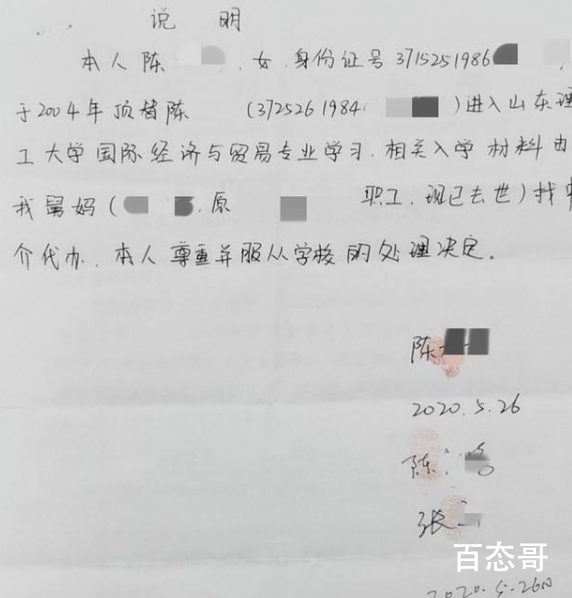 说 明
本人陈 ，女，身份证号3715251986
于2004年顶替陈 (3725261984 )进入山东理
工大学国际经济与贸易专业学习，相关入学材料由
我舅妈( ，原 职工，现已去世)找中
介代办，本人尊重并服从学校的处理决定。
陈
2020.5.26
陈
张
百态哥
2020.5.26日